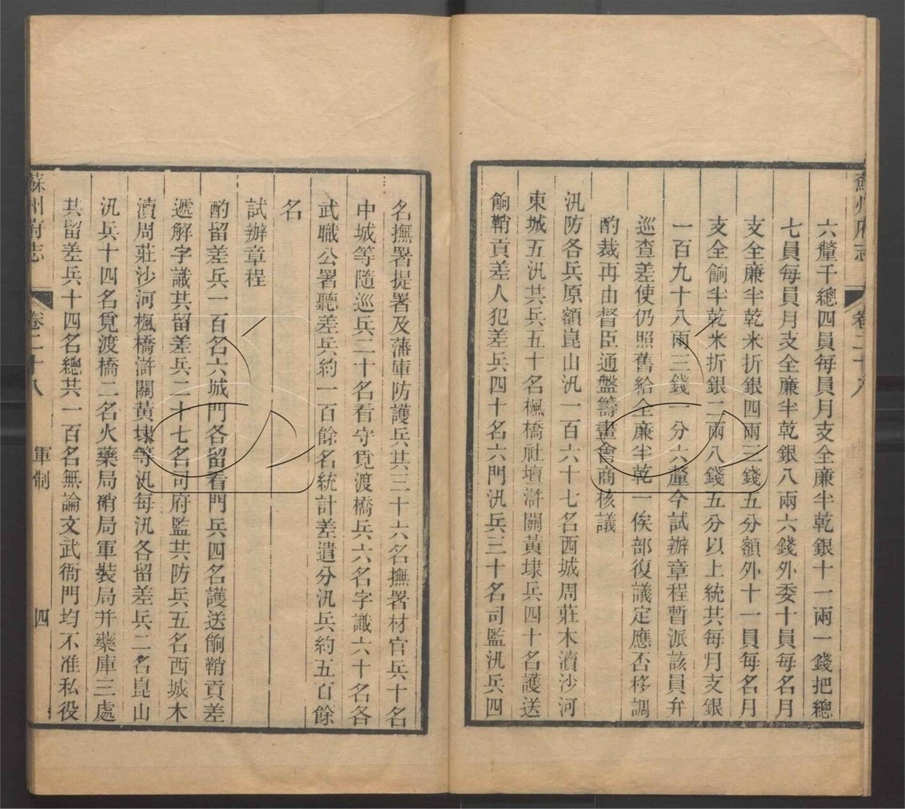 六釐千總四員每員月支全廉半乾銀十一兩一錢把總
七員每員月支全廉半乾銀八兩六錢外委十員每名月
支全廉半乾米折銀四兩三錢五分額外十一員每名月
支全餉半乾米折銀二兩八錢五分以上統共每月支銀
一百九十八兩三錢一分六釐今試辦章程暫派該員弁
巡查差使仍照舊給全廉半乾一俟部復議定應否移調
酌裁再由督臣通盤籌畫會商核議
汛防各兵原額崑山汛一百六十七名西城周莊木瀆沙河
東城五汛共兵五十名楓橋社壇滸關黃埭兵四十名護送
餉鞘貢差人犯差兵四十名六門汛兵三十名司監汛兵四
蘇州府志
卷二十八
軍制
四
名撫署提署及藩庫防護兵共三十六名撫署材官兵十名
中城等隨巡兵二十名看守覓渡橋兵六名字識六十名各
武職公署聽差兵約一百餘名統計差遣分汛兵約五百餘
名
試辦章程
酌留差兵一百名六城門各留看門兵四名護送餉鞘貢差
遞解字識共留差兵二十七名司府監共防兵五名西城木
瀆周莊沙河楓橋滸關黃埭等汛每汛各留差兵二名崑山
汛兵十四名覓渡橋二名火藥局硝局軍裝局并藥庫三處
共留差兵十四名總共一百名無論文武衙門均不准私役